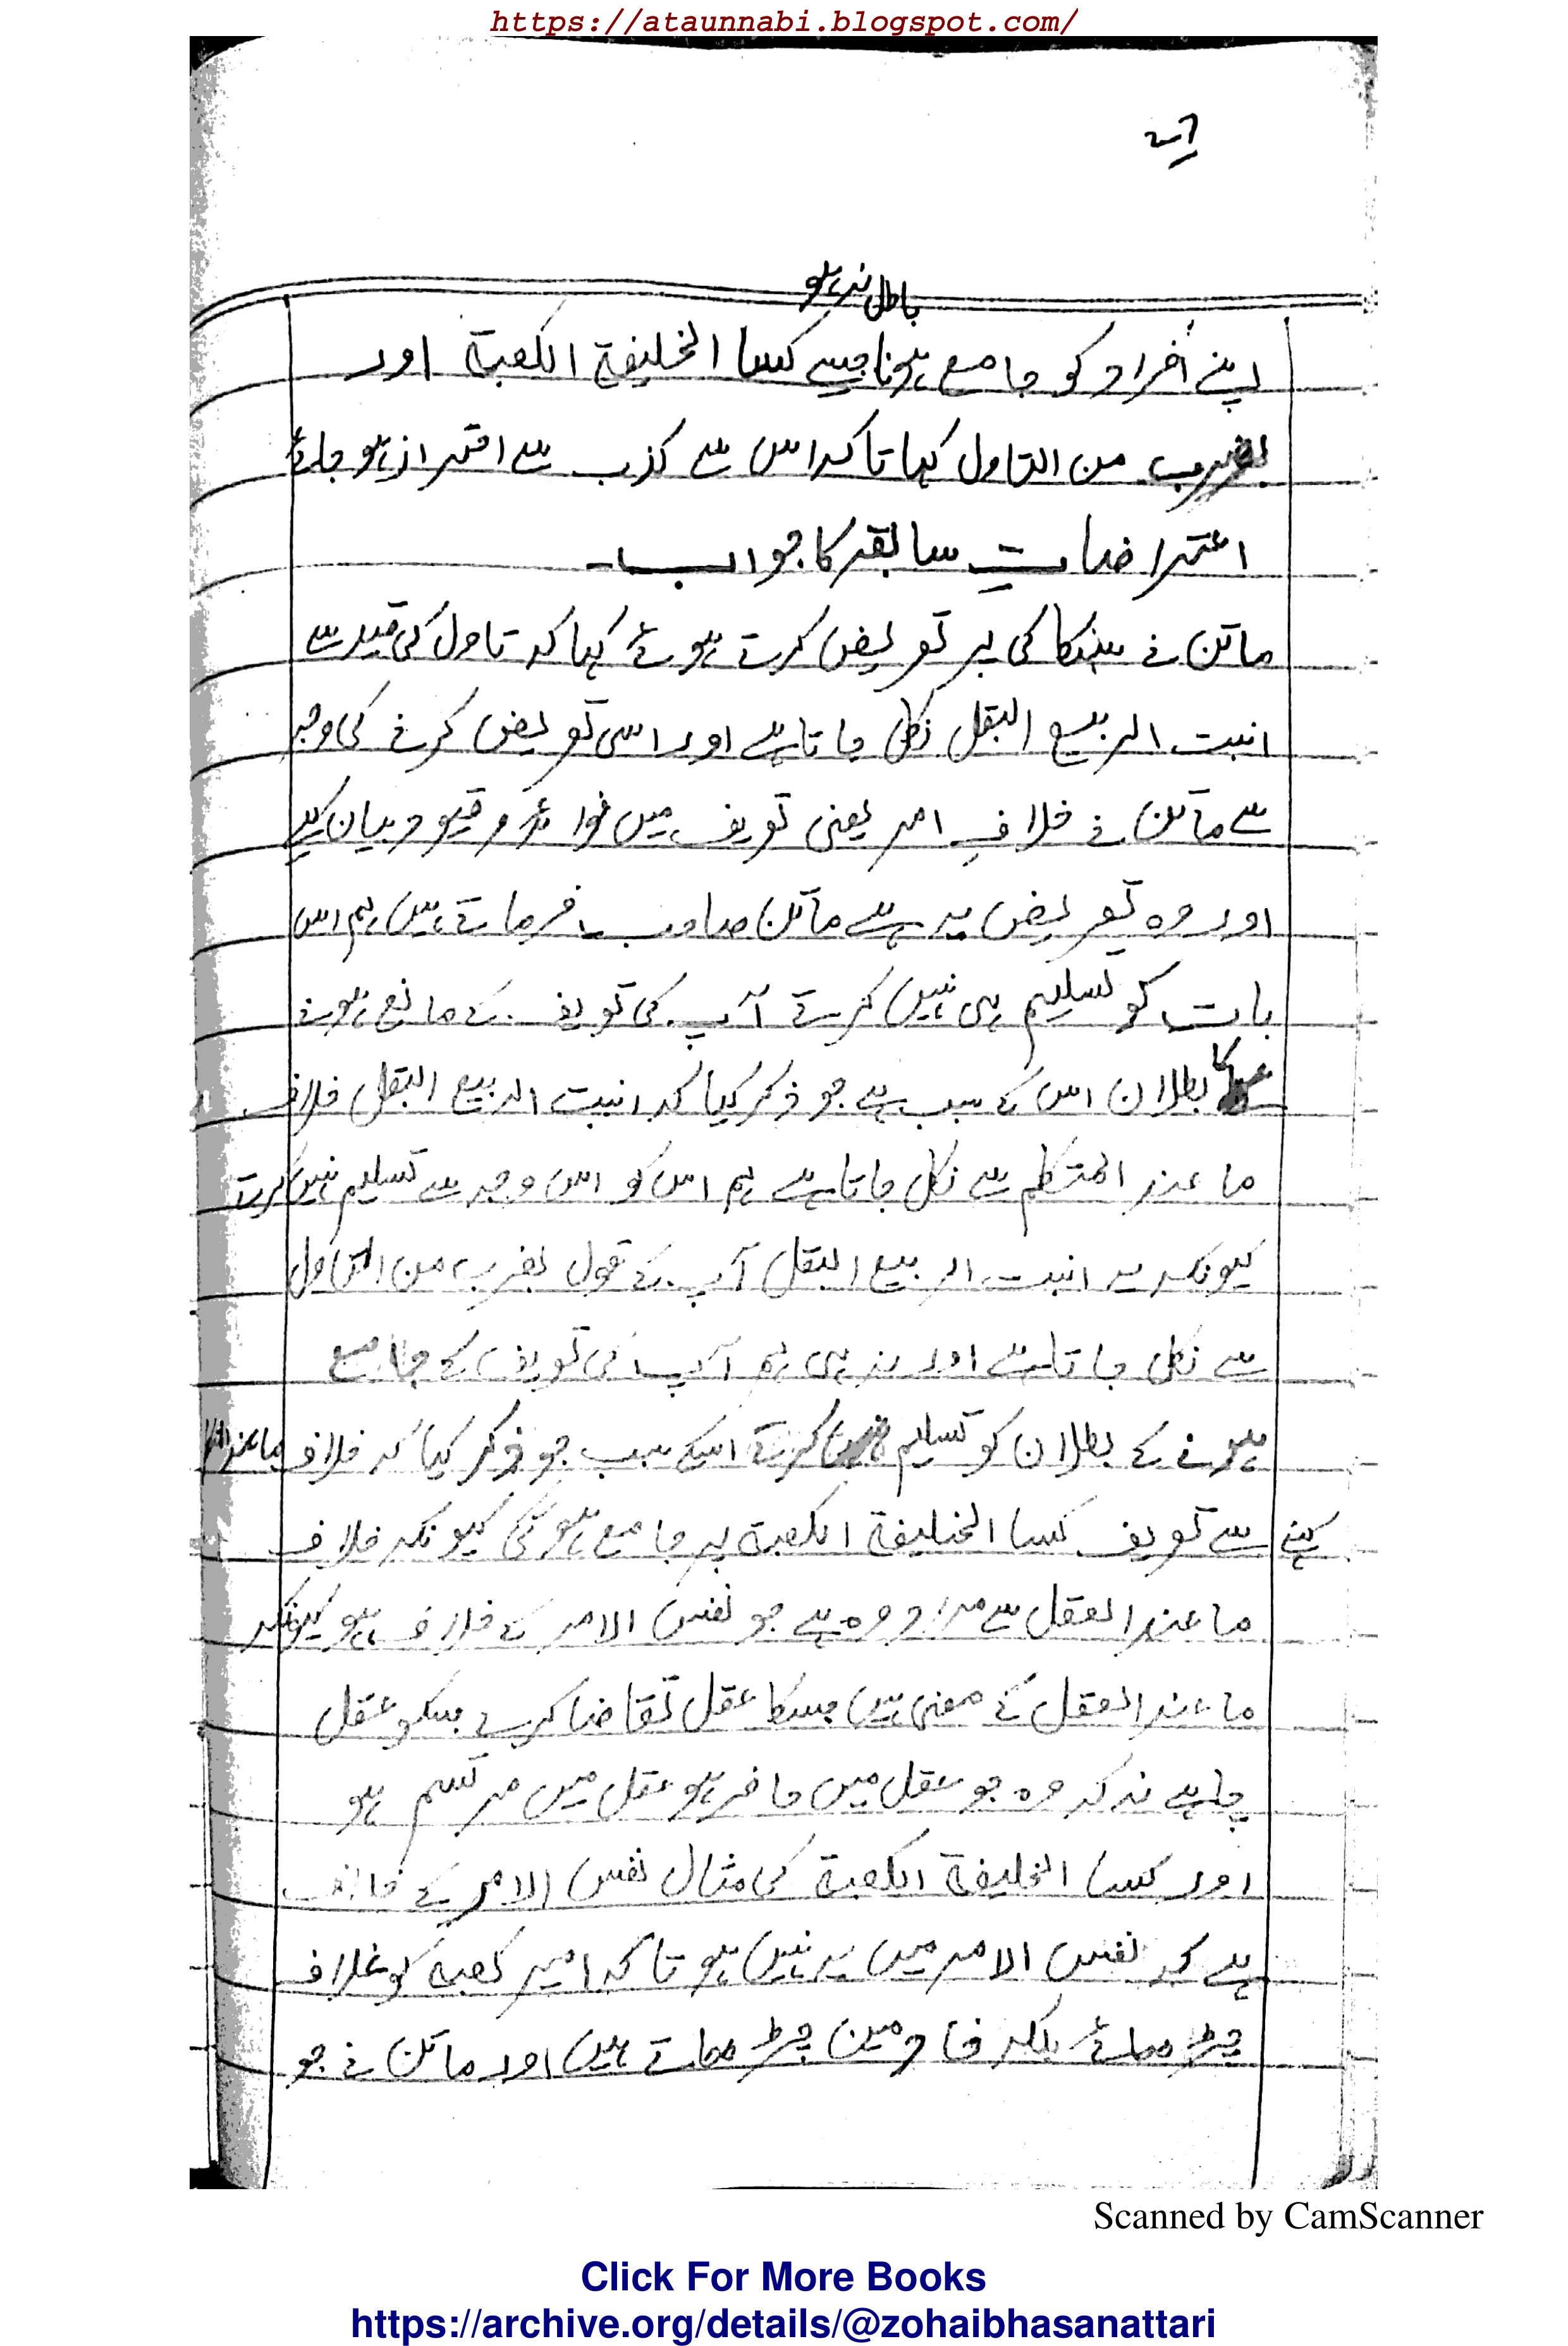 https://ataunnabi.blogspot.com/
باطل نہ ہو
اپنے افراد کو جامع ہونا جیسے کسا الخلیفة الکعبة اور
بضرب من التاول کہا تاکہ اس سے کذب سے احتراز ہو جائے
اعتراضاتِ سابقہ کا جواب۔
ماتن نے سکاکی پر تعریض کرتے ہوئے کہا کہ تاول کی قید سے
انبت الربیع البقل نکل جاتا ہے اور اسی تعریض کرنے کی وجہ
سے ماتن نے خلافِ امر یعنی تعریف میں فوائد و قیود بیان کیے
اور وہ تعریض یہ ہے ماتن صاحب فرماتے ہیں ہم اس
بات کو تسلیم ہی نہیں کرتے آپ کی تعریف کے مانع ہونے
کا بطلان اس کے سبب سے جو ذکر کیا کہ انبت الربیع البقل خلاف
ما عند المتکلم سے نکل جاتا ہے ہم اس کو اس وجہ سے تسلیم نہیں کرتے
کیونکہ یہ انبت الربیع البقل آپ کے قول بضرب من التاول
سے نکل جاتا ہے اور نہ ہی ہم آپ کی تعریف کے جامع
ہونے کے بطلان کو تسلیم کرتے اسکے سبب جو ذکر کیا کہ خلاف ما عند
کہنے سے تعریف کسا الخلیفة الکعبة پر جامع ہو گی کیونکہ خلاف
ما عند العقل سے مراد وہ ہے جو نفس الامر کے خلاف ہو کیونکہ
ما عند العقل کے معنی ہیں جسکا عقل تقاضا کرے جسکو عقل
چاہے نہ کہ وہ جو عقل میں حاضر ہو عقل میں مرتسم ہو
اور کسا الخلیفة الکعبة کی مثال نفس الامر کے خلاف
ہے کہ نفس الامر میں یہ نہیں ہوتا کہ امیر کعبہ کو غلاف
چڑھائے بلکہ خادمین چڑھاتے ہیں اور ماتن نے جو
Scanned by CamScanner
Click For More Books
https://archive.org/details/@zohaibhasanattari